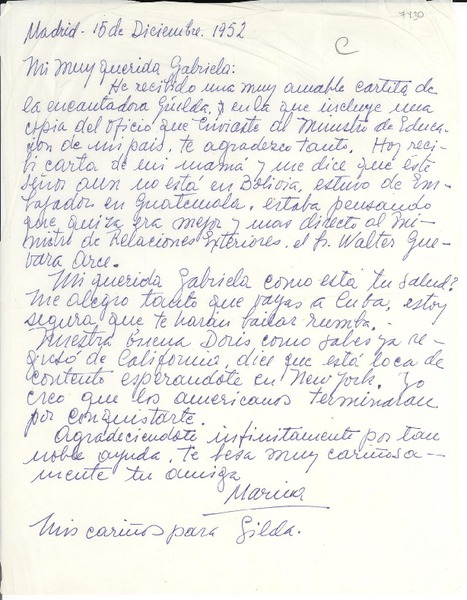 7430
C
Madrid - 15 de Diciembre. 1952
Mi muy querida Gabriela:
He recibido una muy amable cartita de
la encantadora Guilda, y en la que incluye una
copia del oficio que enviaste al Ministro de Educa-
ción de mi país, te agradezco tanto. Hoy reci-
bí carta de mi mamá y me dice que este
señor aun no está en Bolivia, estuvo de Em-
bajador en Guatemala, estaba pensando
que quiza era mejor y mas directo al Mi-
nistro de Relaciones Exteriores. el Sr. Walter Gue-
vara Arce.
Mi querida Gabriela como está tu salud?
me alegro tanto que vayas a Cuba, estoy
segura que te harán bailar rumba.-
Nuestra buena Doris como sabes ya re-
gresó de California, dice que está loca de
contento esperandote en New York. Yo
creo que los americanos terminaran
por conquistarte.
Agradeciendote infinitamente por tan
noble ayuda, te besa muy cariñosa-
mente tu amiga
Marina
Mis cariños para Gilda.